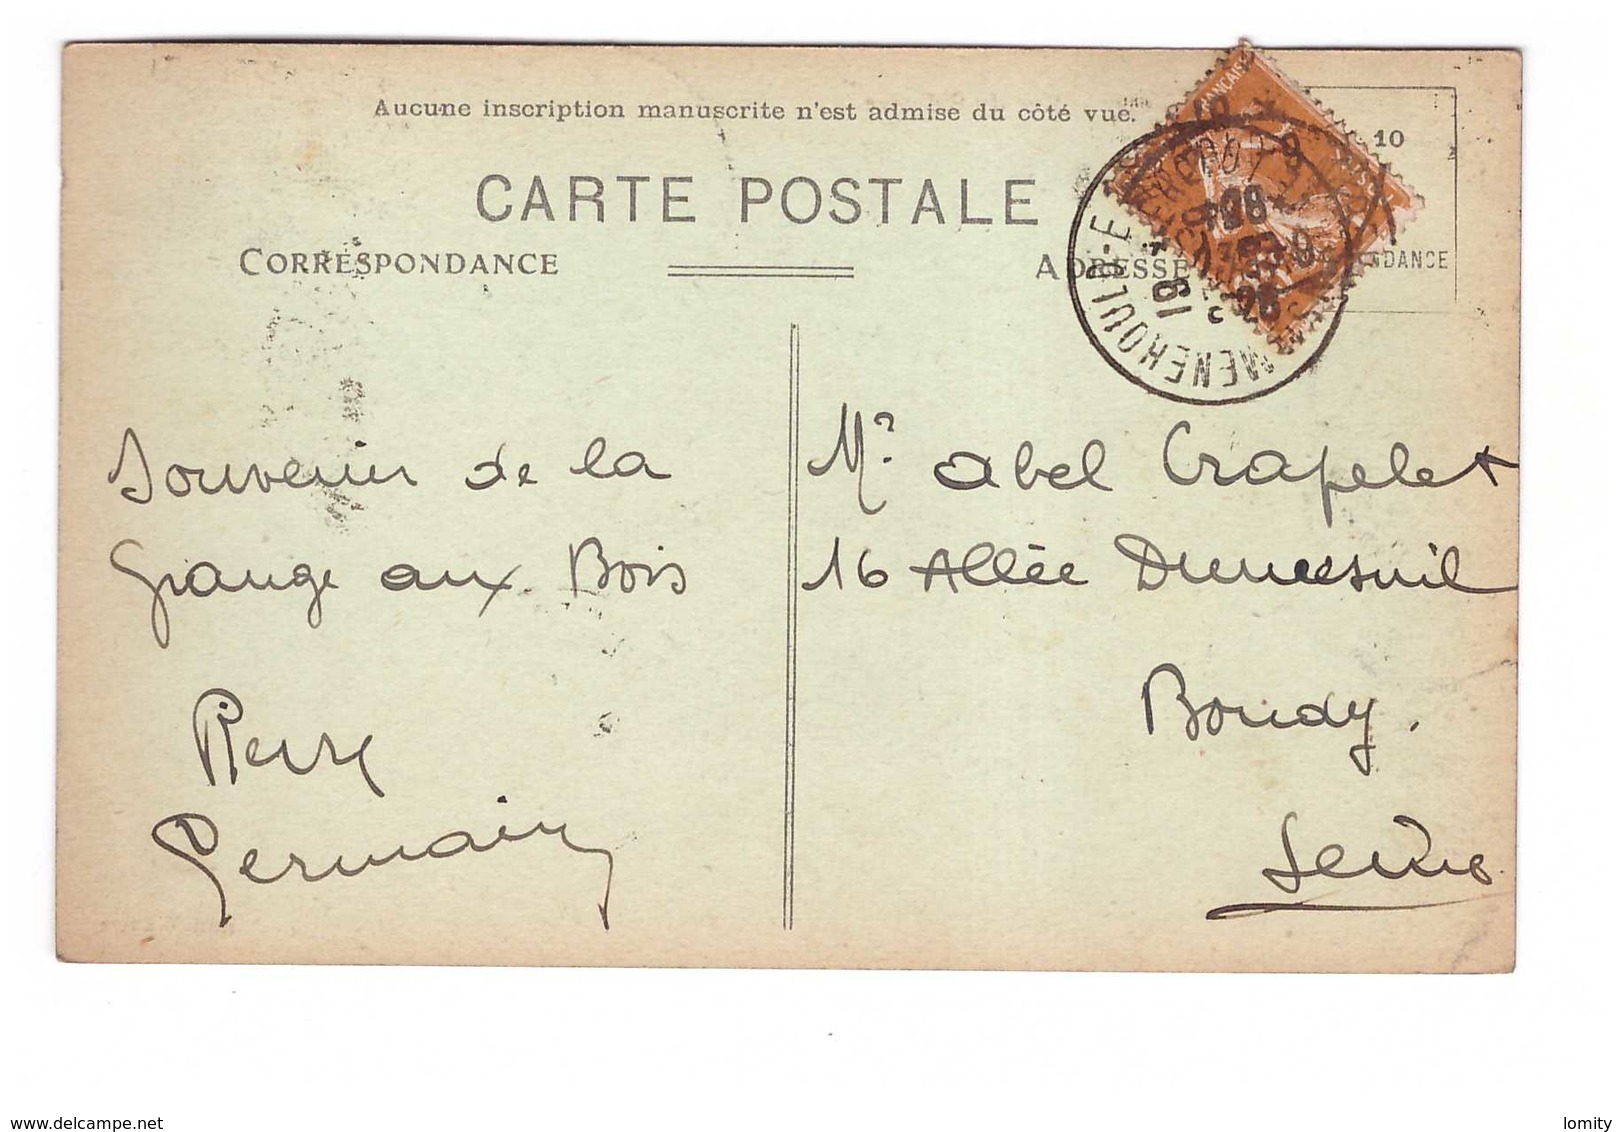 Aucune inscription manuscrite n'est admise du côté vue.
10
CARTE POSTALE
CORRESPONDANCE
ADRESSE
DANCE
FRANÇAISE
MENEHOULD-E
19
Souvenir de la
Grange aux Bois
Pierre
Germain
Mr abel Crapelet
16 Allée Dumesnil
Bondy.
Seine
www.delcampe.net
lomity